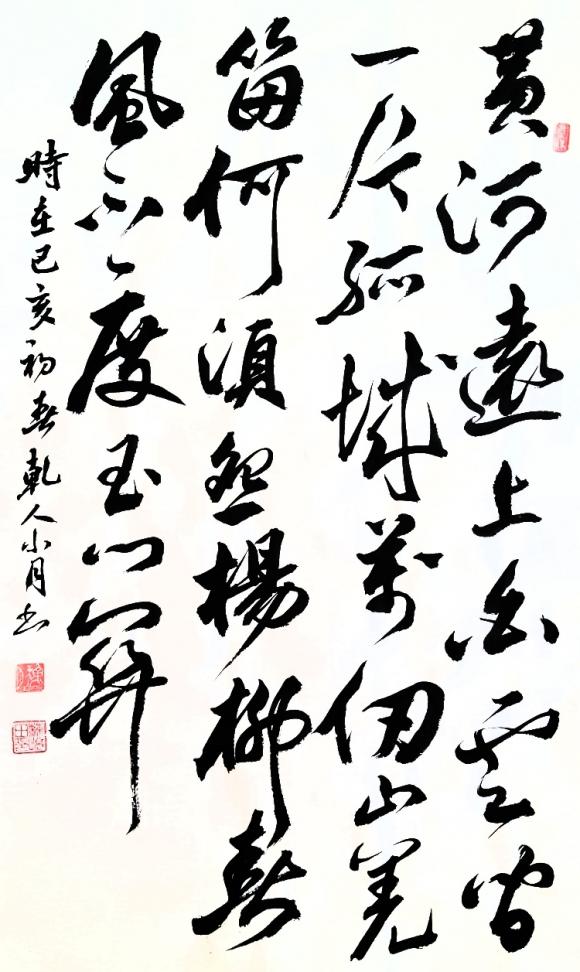 黄河遠上白雲間
一片孤城萬仞山羌
笛何須怨楊柳春
風不度玉門關
時在己亥初春乾人小月书